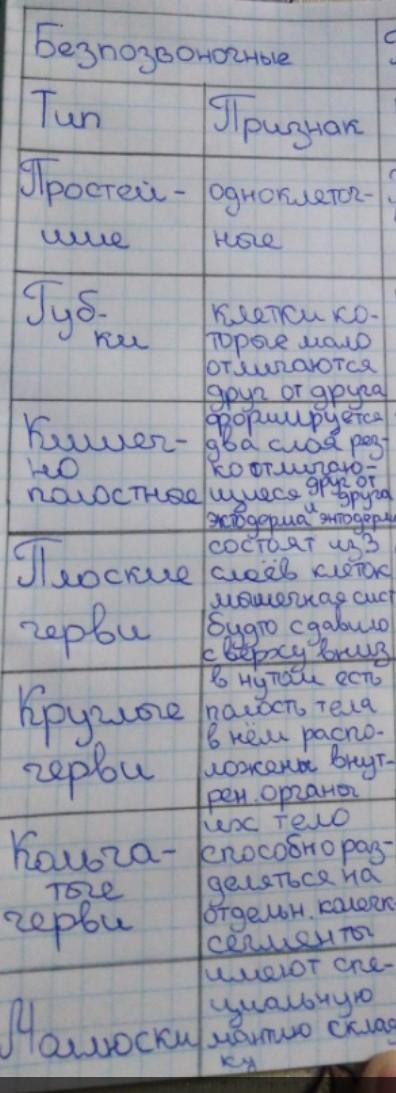 Безпозвоночные
Тип Признак
Простей- одноклеточ-
шие ные
Губ- клетки ко-
ки торые мало
отличаются
друг от друга
Кишеч- формируется
но два слоя рез-
полостные ко отличаю-
щиеся друг от
и друга
эктодерма энтодерм
Плоские состоят из 3
черви слоёв клеток
мышечная сист
будто сдавило
сверху вниз
Круглые в нутри есть
черви полость тела
в нём распо-
ложены внут-
рен. органы
Кольча- их тело
тые способно раз-
черви деляться на
отдельн. колечк
сегменты
Моллюски имеют спе-
циальную
мантию склад
ку